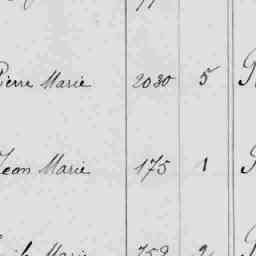 Pierre Marie 2030 5
Jean Marie 175 1
Marie 758